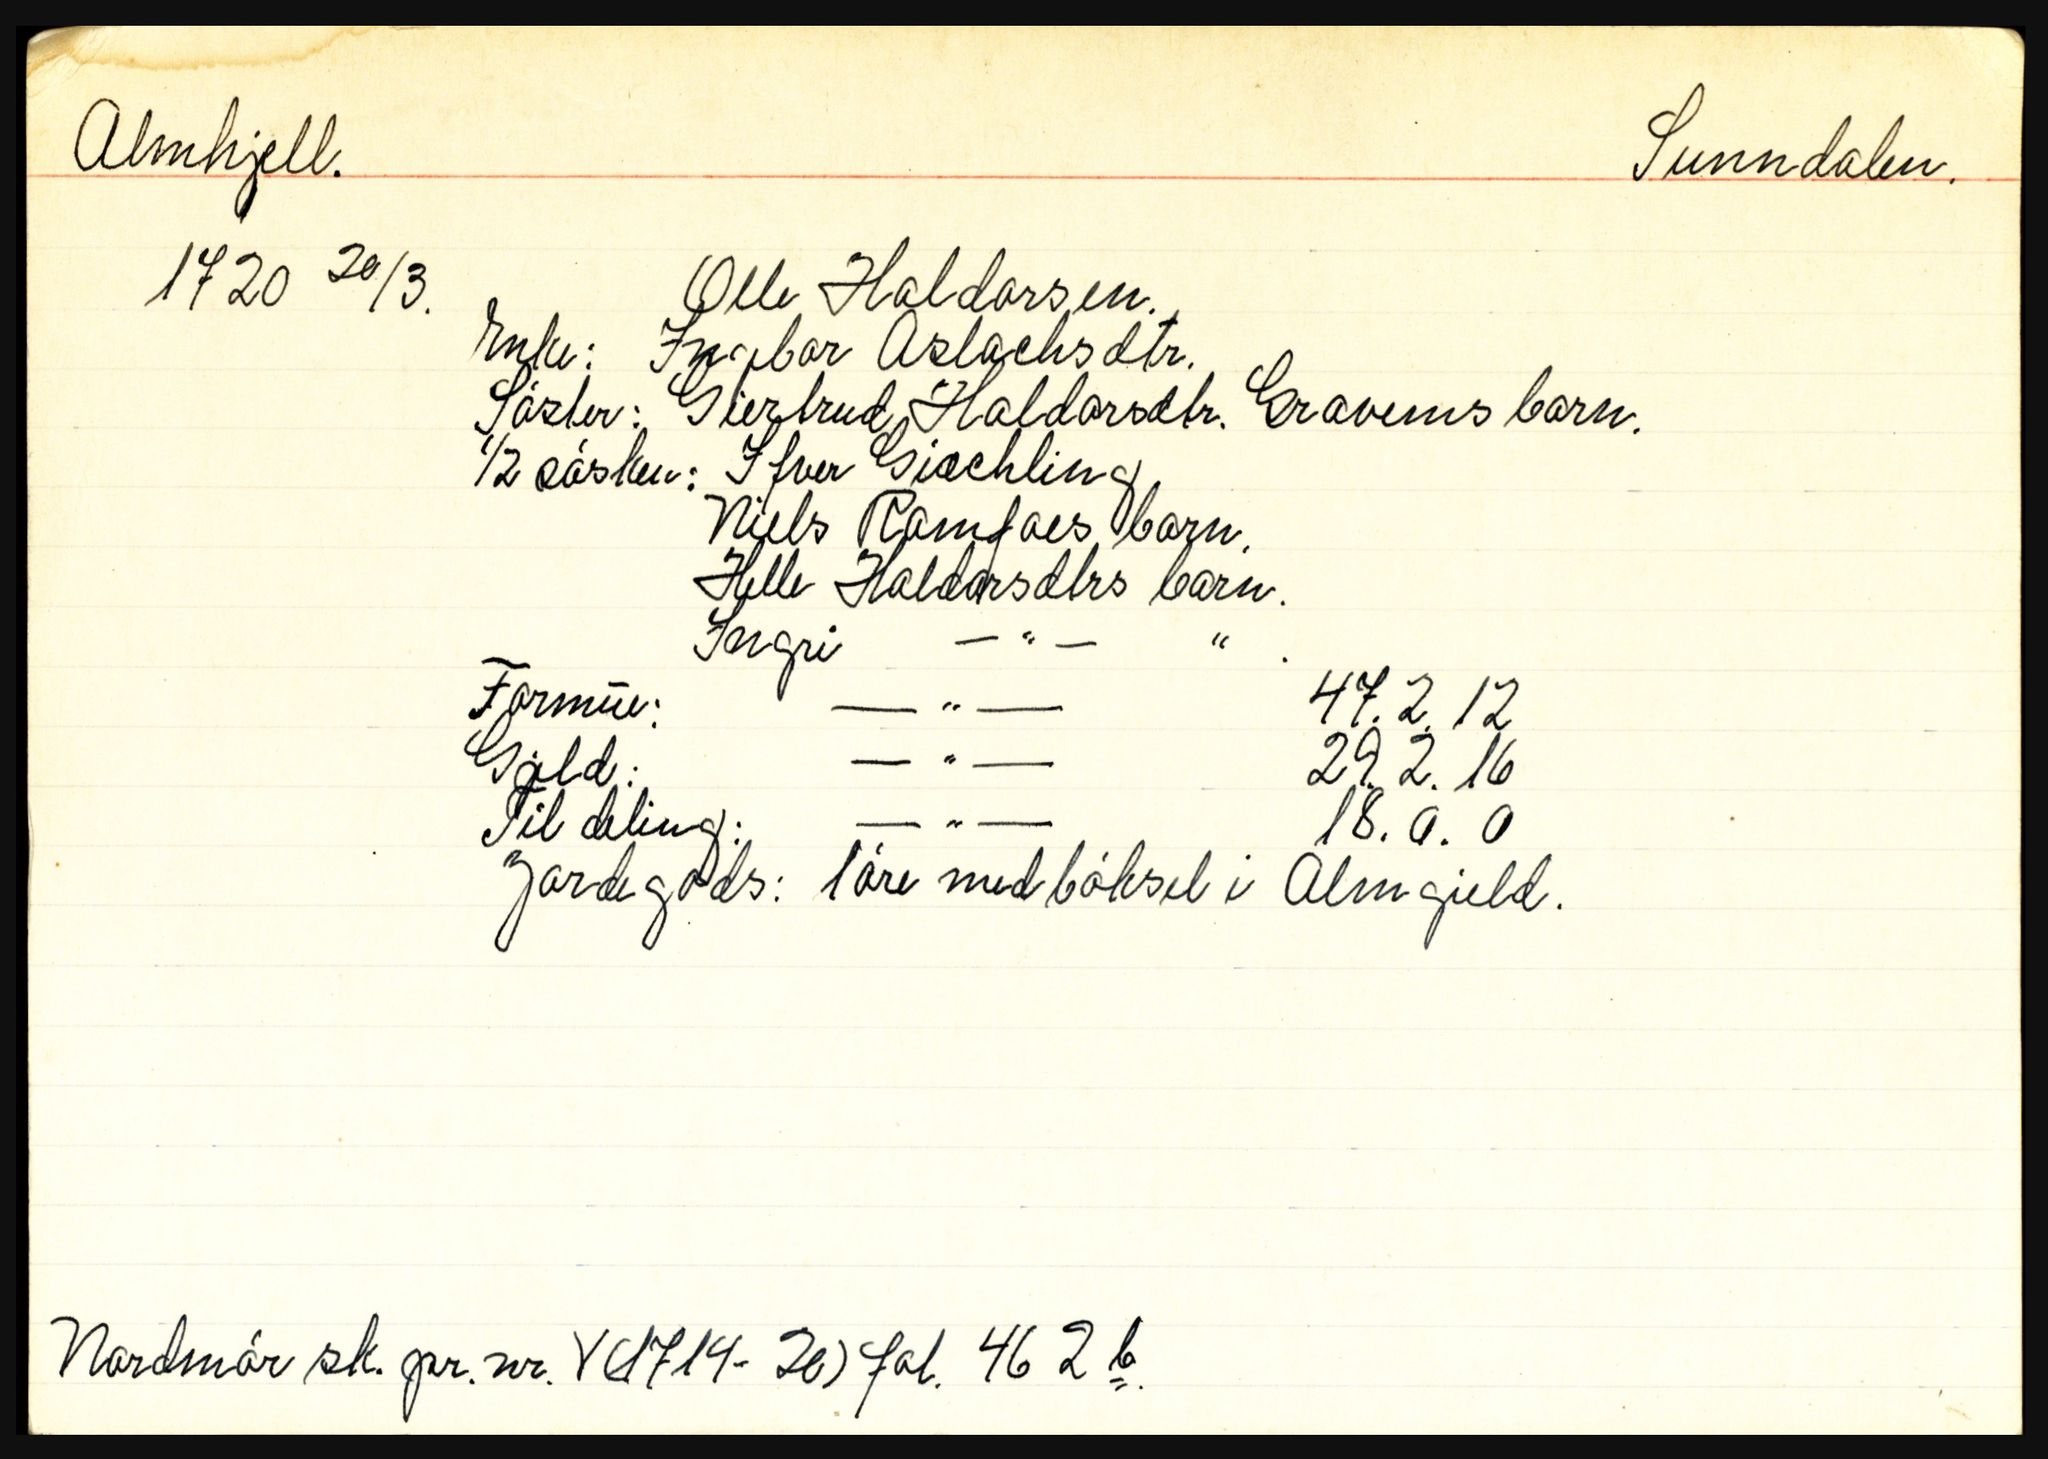 Almhjell. Sunndalen.
1720 20/3. Olle Haldorsen.
Enke: Ingbor Aslachsdtr.
Söster: Giertrud Haldorsdtr. Gravems barn.
1/2 søsken: Ifver Giæchling
Niels Ramfoes barn.
Helle Haldorsdtrs barn.
Ingri — " — " .
Formüe: — " — 47. 2. 12
Gjeld: — " — 29. 2. 16
Til deling: — " — 18. 0. 0
Jordegods: 1 öre med böksel i Almgield.
Nordmör sk. pr. nr. V (1714-20) fol. 462 b.